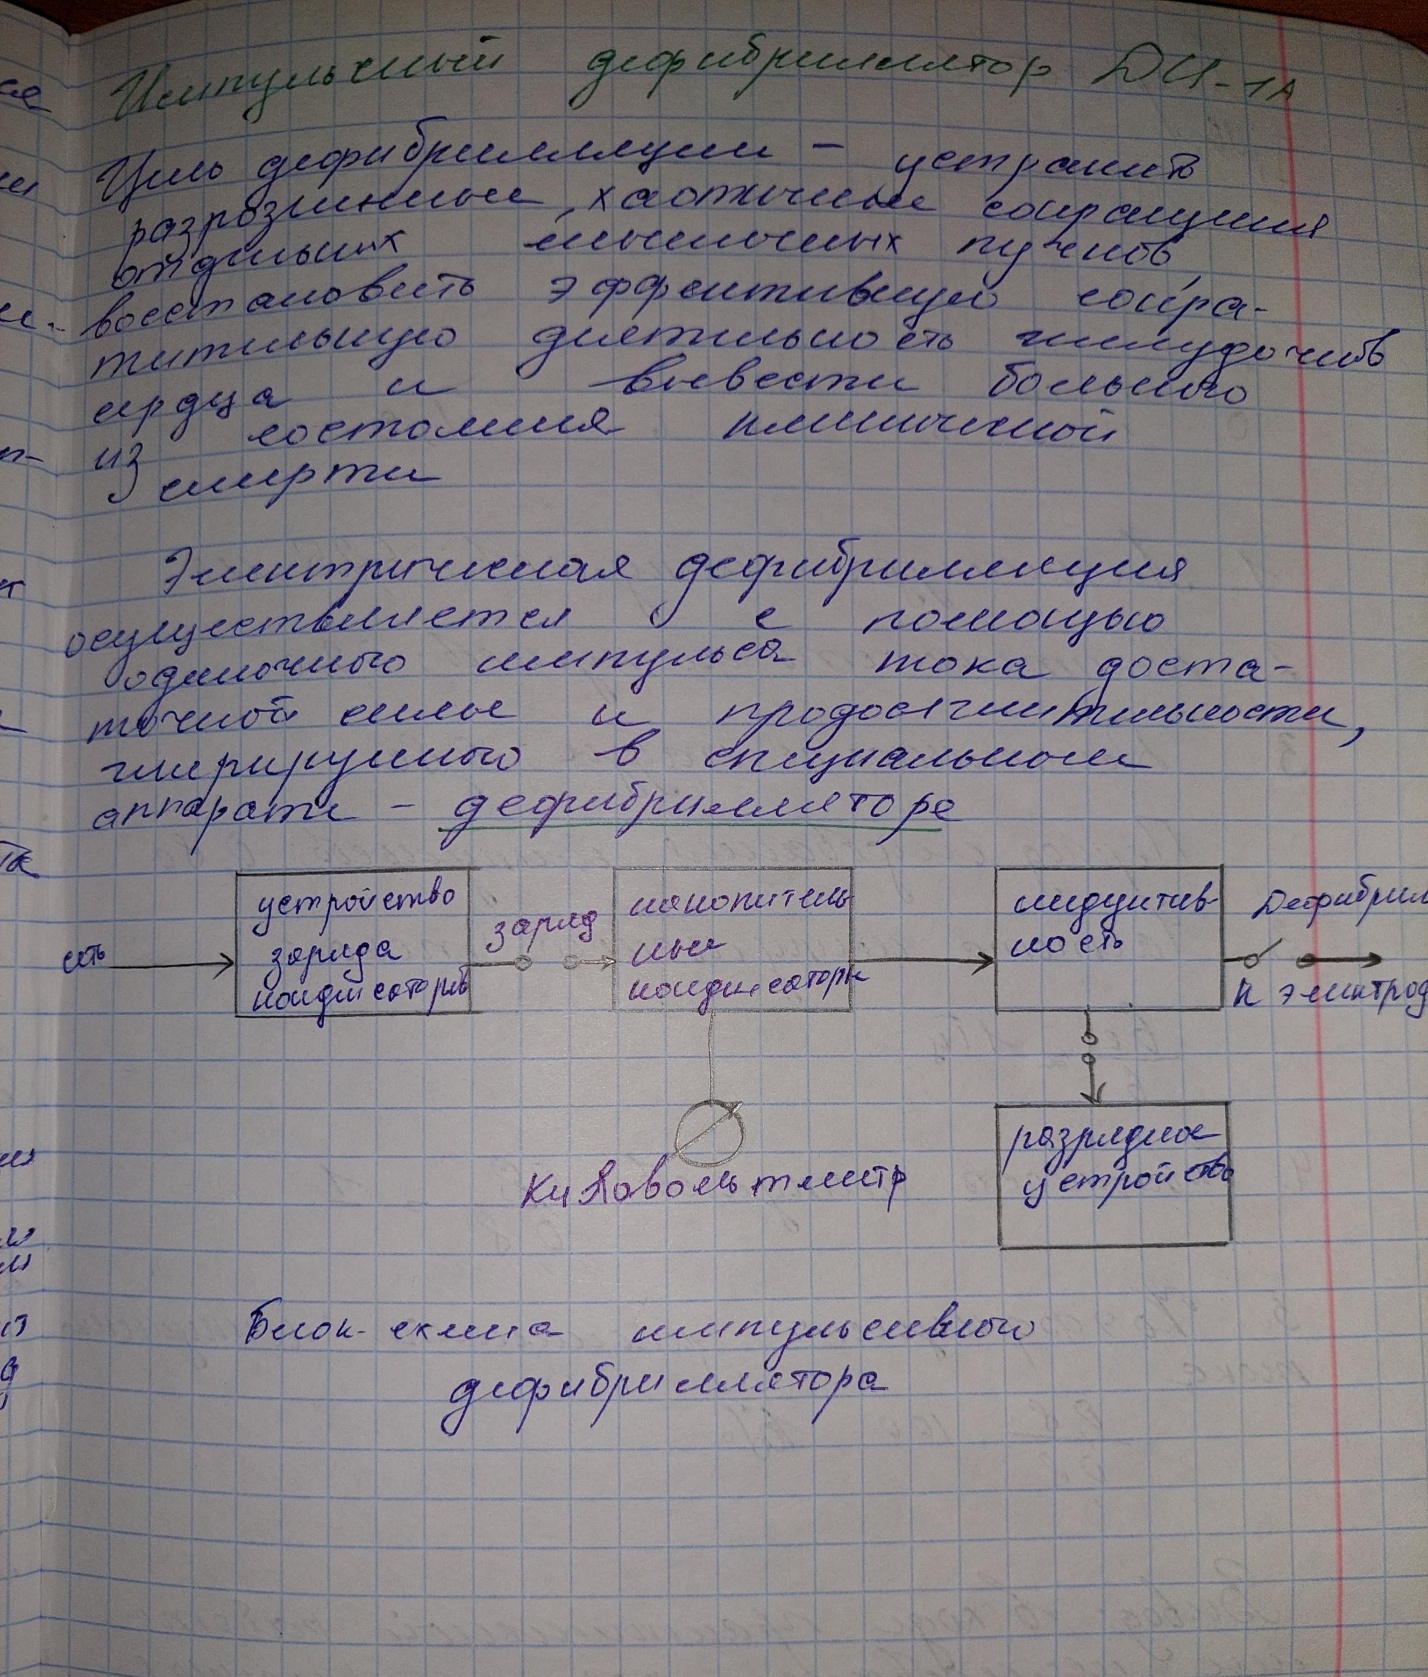 Импульсный дефибриллятор ДИ-1А
Цель дефибрилляции - устранить
разрозненные, хаотичные сокращения
отдельных мышечных пучков,
восстановить эффективную сокра-
тительную деятельность желудочков
сердца и вывести больного
из состояния клинической
смерти
Электрическая дефибрилляция
осуществляется с помощью
одиночного импульса тока доста-
точной силы и продолжительности,
генерируемого в специальном
аппарате - дефибрилляторе
сеть
устройство
заряда
конденсаторов
заряд
накопитель
ные
конденсаторы
индуктив-
ность
Дефибрил
к электрод
разрядное
устройство
Киловольтметр
Блок-схема импульсивного
дефибриллятора